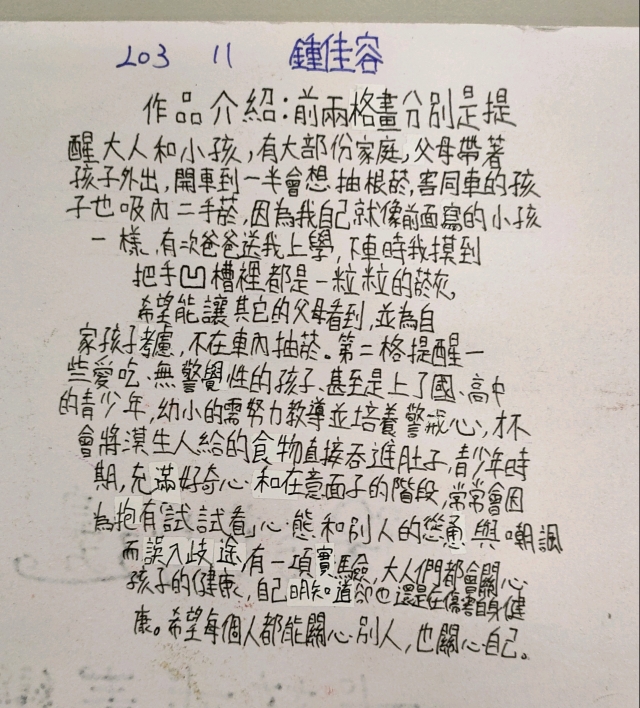 203 11 鍾佳容
作品介紹:前兩格畫分別是提
醒大人和小孩,有大部份家庭,父母帶著
孩子外出,開車到一半會想抽根菸,害同車的孩
子也吸內二手菸,因為我自己就像前面寫的小孩
一樣,有次爸爸送我上學,下車時我摸到
把手凹槽裡都是一粒粒的菸灰。
希望能讓其它的父母看到,並為自
家孩子考慮,不在車內抽菸。第二格提醒一
些愛吃、無警覺性的孩子、甚至是上了國、高中
的青少年,幼小的需努力教導並培養警戒心,才不
會將漠生人給的食物直接吞進肚子,青少年時
期,充滿好奇心和在意面子的階段,常常會因
為抱有「試試看」心態和別人的慫恿與嘲諷
而誤入歧途有一項實驗,大人們都會關心
孩子的健康,自己明知道卻也還是在傷害自身健
康。希望每個人都能關心別人,也關心自己。